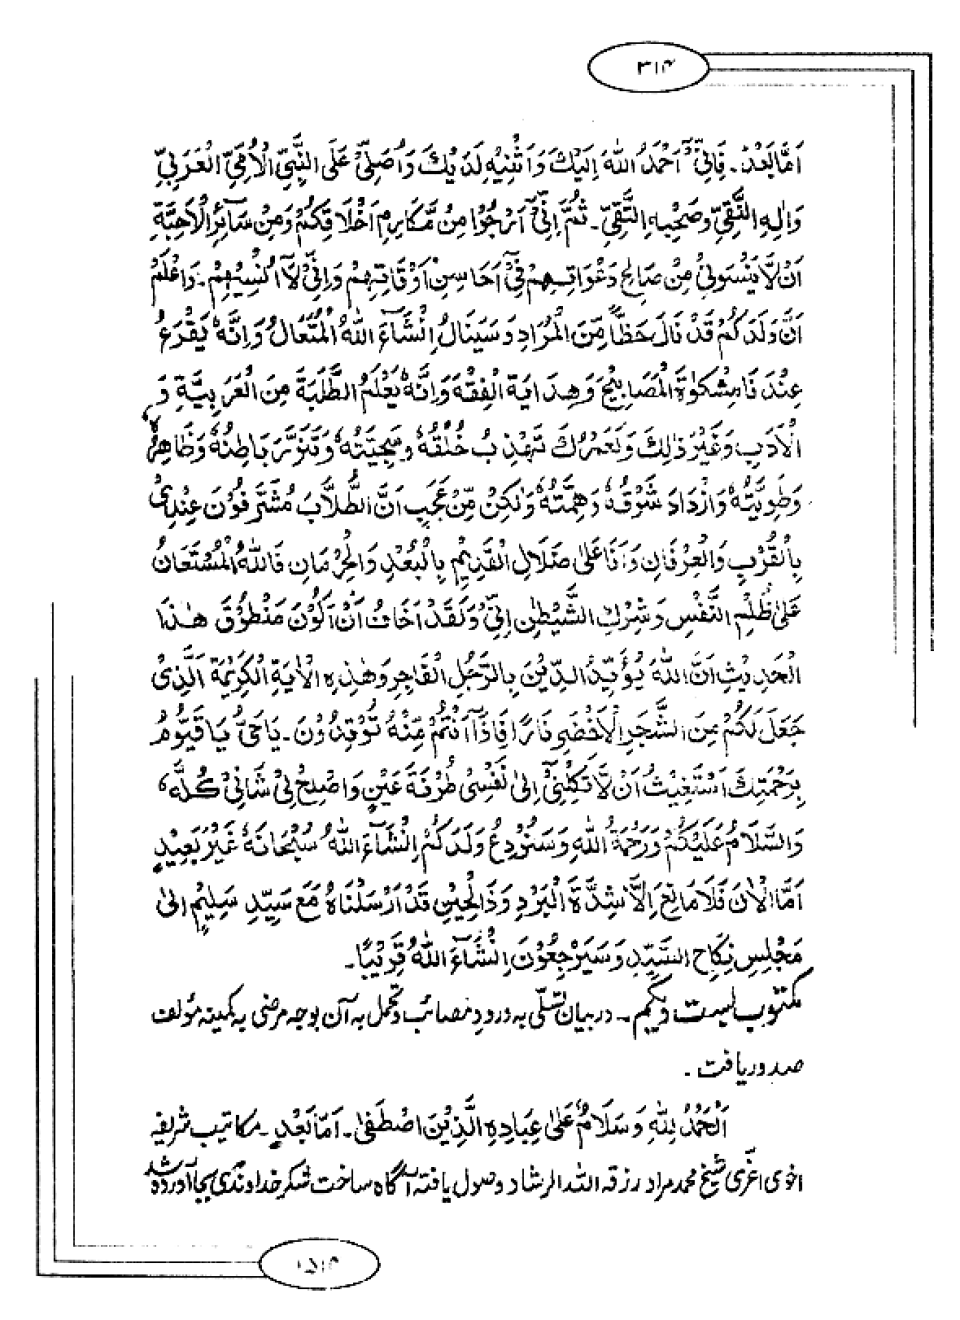 ۳۱۴
اَمَّا بَعْدُ۔ فَاِنِّیْ اَحْمَدُ اللّٰهَ اِلَیْكَ وَ اُثْنِیْهِ لَدَیْكَ وَ اُصَلِّیْ عَلَی النَّبِیِّ الْاُمِّیِّ الْعَرَبِیِّ
وَاٰلِهِ النَّقِیِّ وَ صَحْبِهِ التَّقِیِّ۔ ثُمَّ اِنِّیْ اَرْجُوْا مِنْ مَّكَارِمِ اَخْلَاقِكُمْ وَمِنْ سَآئِرِ الْاَحِبَّةِ
اَنْ لَّا یَنْسَوْنِیْ مِنْ صَالِحِ دَعْوَاتِهِمْ فِیْٓ اَحَاسِنِ اَوْقَاتِهِمْ وَاِنِّیْ لَآ اَنْسِیْهِمْ۔ وَاعْلَمْ
اَنَّ وَلَدَكُمْ قَدْ نَالَ حَظًّا مِّنَ الْمُرَادِ وَ سَیَنَالُ اِنْشَآءَ اللّٰهُ الْمُتَعَالُ وَ اِنَّهٗ یَقْرَءُ
عِنْدَنَا مِشْكٰوةَ الْمَصَابِیْحِ وَ هِدَایَةَ الْفِقْهِ وَ اِنَّهٗ یَعْلَمُ الطَّلَبَةَ مِنَ الْعَرَبِیَّةِ وَ
الْاَدَبِ وَ غَیْرَ ذٰلِكَ وَ لَعَمْرُكَ تَهْذِبُ خُلُقُهٗ وَ سَجِیَّتُهٗ وَ تَنَوَّرَ بَاطِنُهٗ وَ ظَاهِرُهٗ
وَ طَوِیَّتُهٗ وَ ازْدَادَ شَوْقُهٗ وَ هِمَّتُهٗ وَ لٰكِنْ مِّنْ عَجَبٍ اَنَّ الطُّلَّابَ مُشَرَّفُوْنَ عِنْدِیْ
بِالْقُرْبِ وَالْعِرْفَانِ وَ اَنَا عَلٰی ضَلَالِ الْقَدِیْمِ بِالْبُعْدِ وَ الْحِرْمَانِ فَاللّٰهُ الْمُسْتَعَانُ
عَلٰی ظُلْمِ النَّفْسِ وَ شِرْكِ الشَّیْطٰنِ اِنِّیْ وَ لَقَدْ اَخَافُ اَنْ اَكُوْنَ مَنْطُوْقَ هٰذَا
الْحَدِیْثِ اِنَّ اللّٰهَ یُؤَیِّدُ الدِّیْنَ بِالرَّجُلِ الْفَاجِرِ وَ هٰذِهِ الْاٰیَةِ الْكَرِیْمَةِ الَّذِیْ
جَعَلَ لَكُمْ مِنَ الشَّجَرِ الْاَخْضَرِ نَارًا فَاِذَآ اَنْتُمْ مِّنْهُ تُوْقِدُوْنَ۔ یَا حَیُّ یَا قَیُّوْمُ
بِرَحْمَتِكَ اَسْتَغِیْثُ اَنْ لَّا تَكِلْنِیْٓ اِلٰی نَفْسِیْ طَرْفَةَ عَیْنٍ وَاَصْلِحْ لِیْ شَانِیْ كُلَّهٗ
وَالسَّلَامُ عَلَیْكُمْ وَرَحْمَةُ اللّٰهِ وَ سَنُوْدِعُ وَلَدَكُمْ اِنْشَآءَ اللّٰهُ سُبْحَانَهٗ غَیْرَ بَعِیْدٍ
اَمَّا الْاٰنَ فَلَا مَانِعَ اِلَّا شِدَّةَ الْبَرْدِ وَ ذَالْحِیْنِ قَدْ اَرْسَلْنَاهُ مَعَ سَیِّدِ سَلِیْمٍ اِلٰی
مَجْلِسِ نِكَاحِ السَّیِّدِ وَ سَیَرْجِعُوْنَ اِنْشَآءَ اللّٰهُ قَرِیْبًا۔
مکتوب بیست و یکم۔ در بیان تسلّی به ورودِ مصائب و تحمل به آن بوجه مرضی به کمینه مؤلف
صدور یافت۔
اَلْحَمْدُ لِلّٰهِ وَ سَلَامٌ عَلٰی عِبَادِهِ الَّذِیْنَ اصْطَفٰی۔ اَمَّا بَعْدِ۔ مکاتیب شریفه
اخوی اعزّی شیخ محمد مراد رزقه الله الرشاد وصول یافته آگاه ساخت شکر خداوندی بجا آورده شد
۱۵۱۴